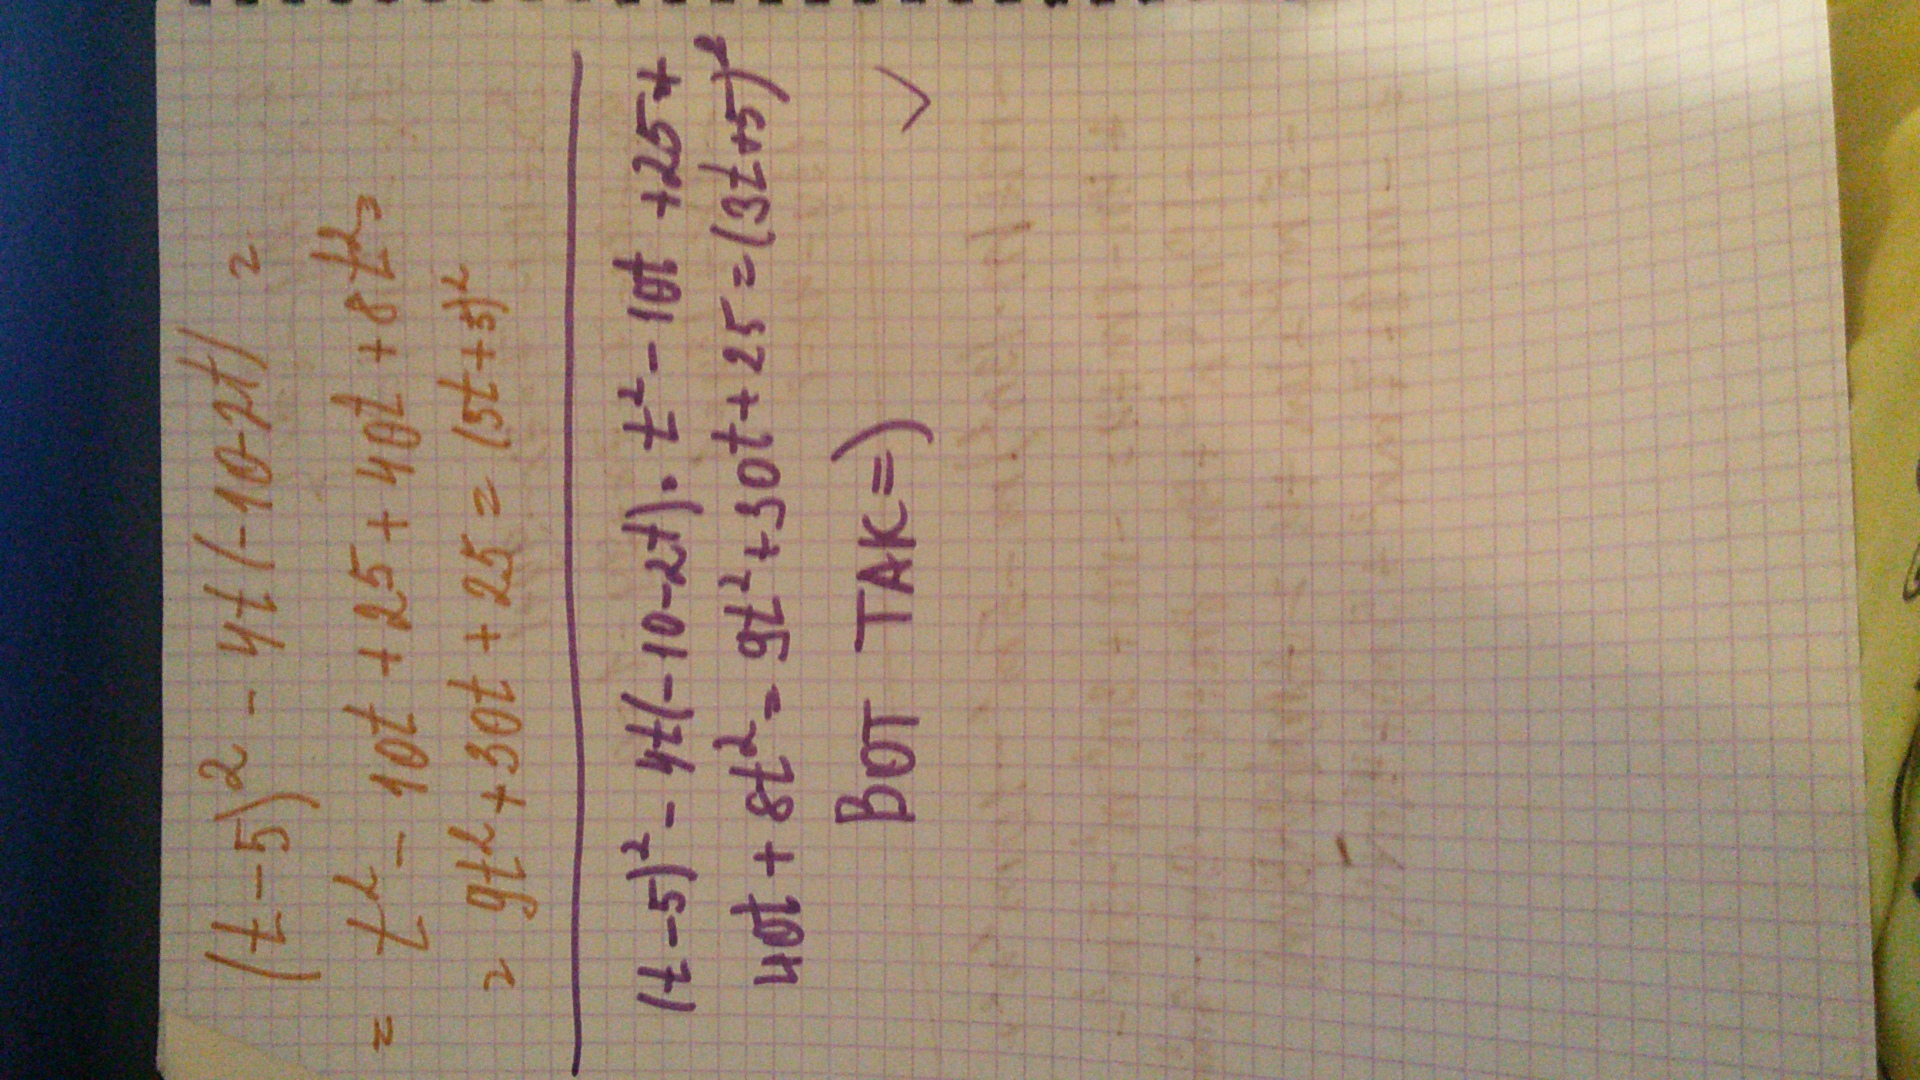 (t-5)² - 4t(-10-2t) =
= t² - 10t + 25 + 40t + 8t² =
= 9t² + 30t + 25 = (5t+3)²
(t-5)² - 4t(-10-2t). t² - 10t + 25 +
40t + 8t² = 9t² + 30t + 25 = (3t+5)²
ВОТ ТАК=)